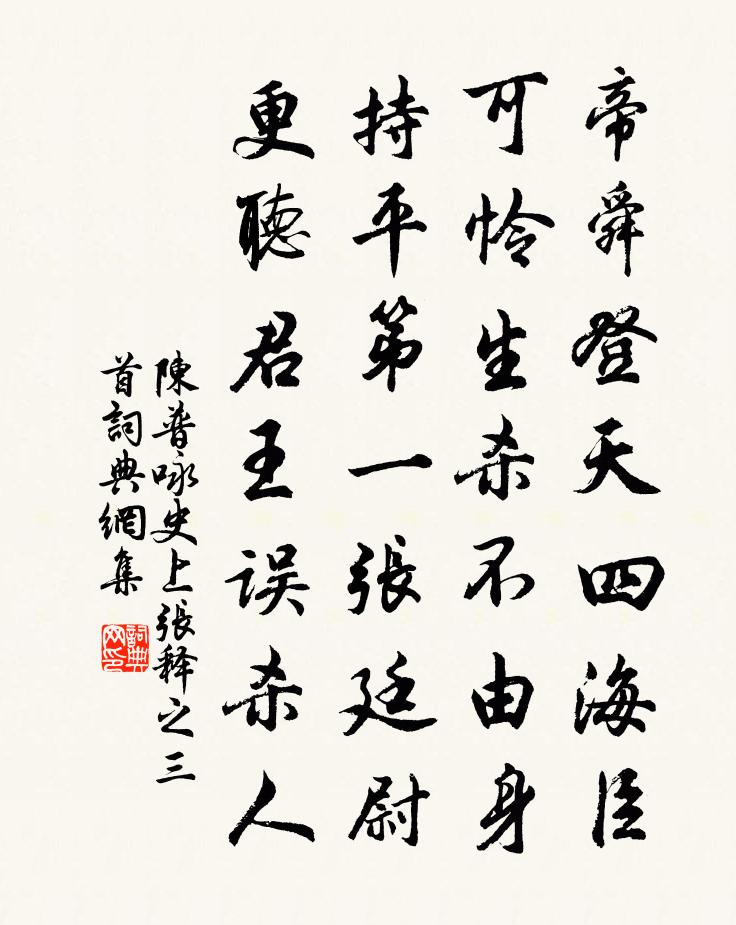 帝舜登天四海臣
可怜生杀不由身
持平第一張廷尉
更聽君王误杀人
陳普咏史上張释之三
首詞典網集
詞典网印